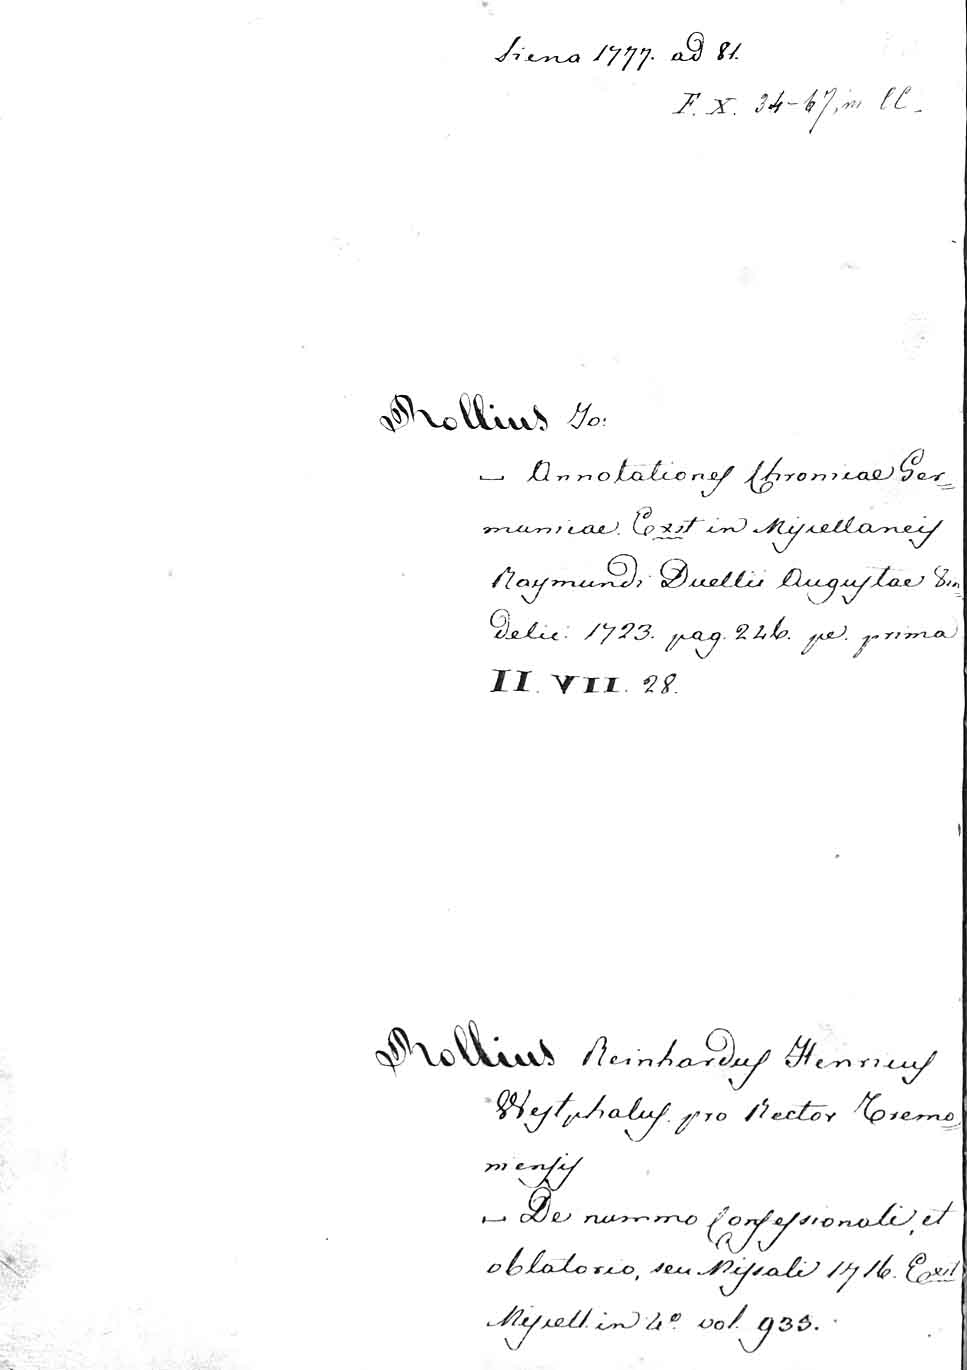 Siena 1777. ad 81.
F. X. 34-67, in CC.
Rollius Jo:
— Annotationes Chronicae Ger=
manicae. Exst in Miscellaneis
Raymundi Duellii Augustae Vin=
delic: 1723. pag. 246. pe. prima
II. VII. 28.
Rollius Reinhardus Henricus
Westphalus. pro Rector Tremo=
niensis
— De nummo Confessionali, et
oblatorio, seu Missali 1716. Exst
Miscell. in 4º. vol. 933.